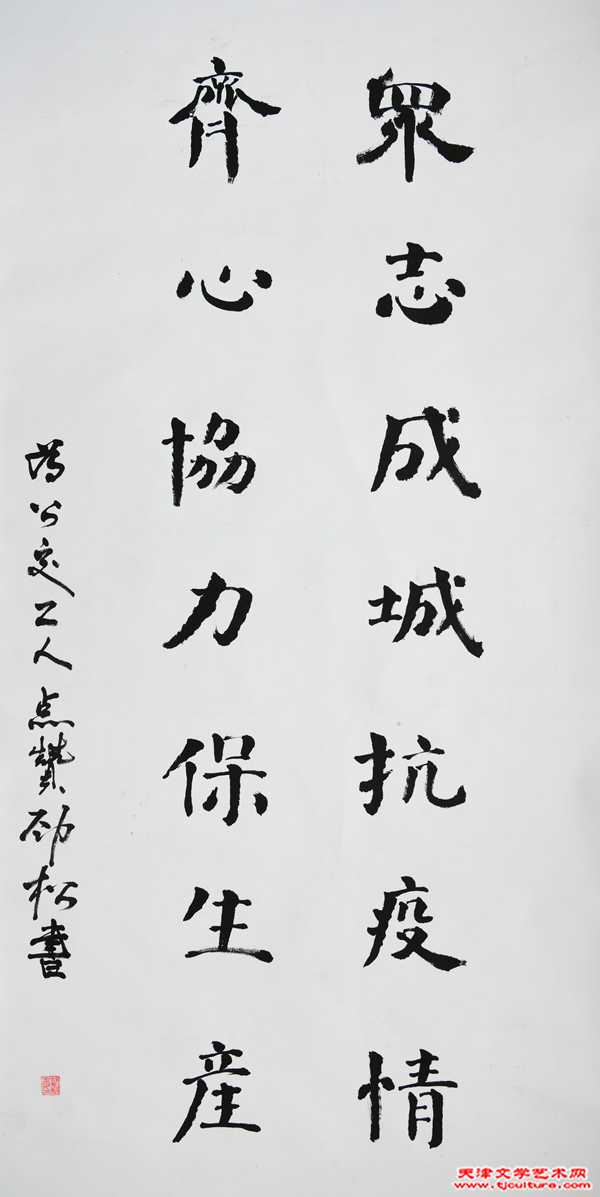 眾志成城抗疫情
齊心協力保生産
为公交工人点赞劲松書
天津文学艺术网
www.tjculture.com